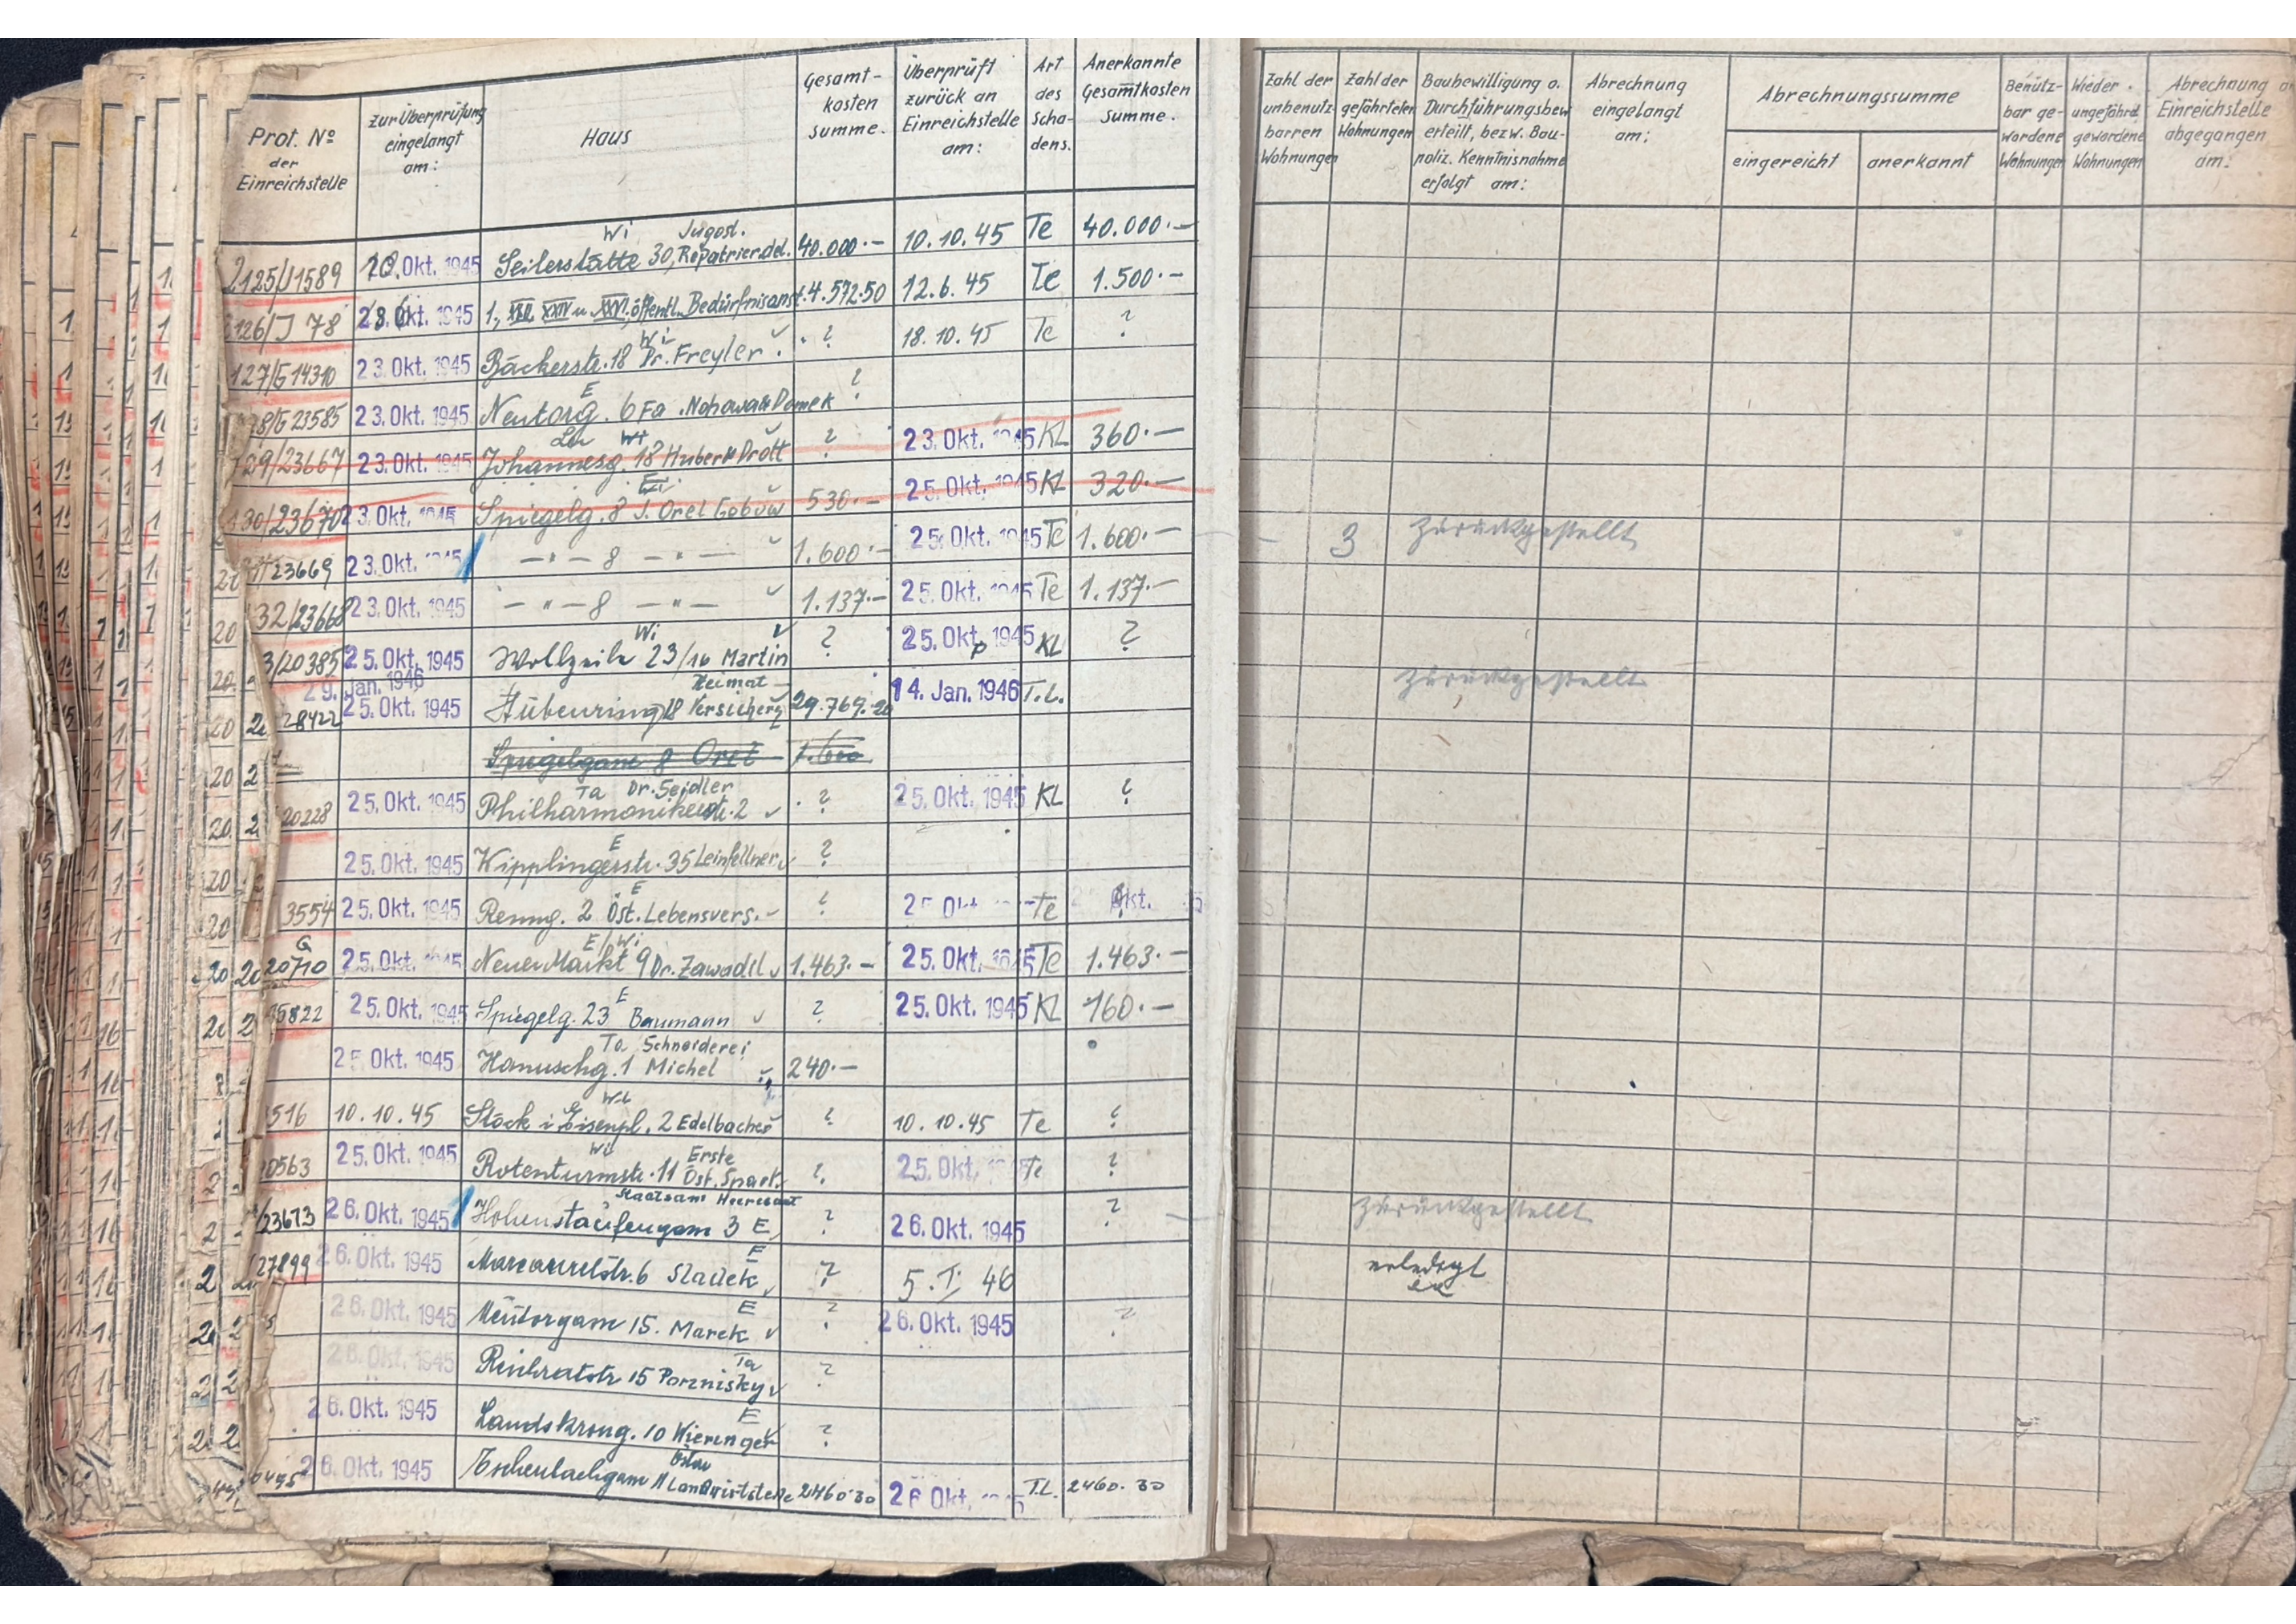 Prot. № der Einreichstelle | zur Überprüfung eingelangt am: | Haus | Gesamt-kosten summe. | Überprüft zurück an Einreichstelle am: | Art des Scha-dens. | Anerkannte Gesamtkosten Summe. | Zahl der unbenutz-barren Wohnungen | Zahl der gefährteten Wohnungen | Baubewilligung o. Durchführungsbew. erteilt, bezw. Bau-poliz. Kenntnisnahme erfolgt am: | Abrechnung eingelangt am: | Abrechnungssumme | eingereicht | anerkannt | Benütz-bar ge-wordene Wohnungen | Wieder ungefährd. gewordene Wohnungen | Abrechnung an Einreichstelle abgegangen am:
2125/J1589 | 10. Okt. 1945 | Wi Jugosl. Seilerstätte 30, Repatrier.del. | 40.000.- | 10.10.45 | Te | 40.000.-
126/J 78 | Okt. 1945 | 1., XXIV u. XXVI, öffentl. Bedürfnisanst. | 4.572.50 | 12.6.45 | Te | 1.500.-
127/G14310 | 23. Okt. 1945 | Wi Bäckerstr. 18 Dr. Freyler | ? | 18.10.45 | Te | ?
28/G23585 | 23. Okt. 1945 | E Neutorg. 6 Fa. Domek | ?
129/23667 | 23. Okt. 1945 | Wi Johannesg. 18 Hubert Prött | ? | 23. Okt. 1945 | KL | 360.-
130/23670 | 23. Okt. 1945 | Spiegelg. 8 J. Orel | 530.- | 25. Okt. 1945 | KL | 320.-
23669 | 23. Okt. 1945 | - " - 8 - " - | 1.600.- | 25. Okt. 1945 | Te | 1.600.- | - | 3 | zurückgestellt
32/23668 | 23. Okt. 1945 | - " - 8 - " - | 1.137.- | 25. Okt. 1945 | Te | 1.137.-
3/20385 | 25. Okt. 1945 | Wi Wollzeile 23/16 Martin | ? | 25. Okt. 1945 | KL | ?
28422 | 29. Jan. 1946 25. Okt. 1945 | Heimat Stubenring 18 Versicherg | 29.769.20 | 14. Jan. 1946 | T.L. | zurückgestellt
Spiegelgasse 8 Orel | 1.600
20228 | 25. Okt. 1945 | Ta Dr. Seidler Philharmonikerstr. 2 | ? | 25. Okt. 1945 | KL | ?
25. Okt. 1945 | E Kipplingerstr. 35 Leinfellner | ?
3554 | 25. Okt. 1945 | E Renng. 2 Öst. Lebensvers. | ? | 25 Okt | Te | Okt.
G 20710 | 25. Okt. 1945 | E/Wi Neuer Markt 9 Dr. Zawadil | 1.463.- | 25. Okt. 1945 | Te | 1.463.-
5822 | 25. Okt. 1945 | E Spiegelg. 23 Baumann | ? | 25. Okt. 1945 | KL | 160.-
25. Okt. 1945 | Ta Schneiderei Hanuschg. 1 Michel | 240.-
516 | 10.10.45 | Wi Stock i. Eisenpl. 2 Edelbacher | ? | 10.10.45 | Te | ?
0563 | 25. Okt. 1945 | Wi Erste Rotenturmstr. 11 Öst. Spark. | ? | 25. Okt. | Te | ?
/23673 | 26. Okt. 1945 | Staatsamt Heereswst Hohenstaufengasse 3 E | ? | 26. Okt. 1945 | ? | zurückgestellt
27899 | 26. Okt. 1945 | E Marcaurelstr. 6 Sladek | ? | 5. I. 46 | erledigt
26. Okt. 1945 | E Neutorgasse 15. Marek | ? | 26. Okt. 1945 | ?
26. Okt. 1945 | Ta Reichratstr 15 Porznisky | ?
26. Okt. 1945 | E Landskrong. 10 Wieringer | ?
26. Okt. 1945 | Eschenbachgasse 11 Landwirtstelle | 2460.30 | 26 Okt. | T.L. | 2460.30